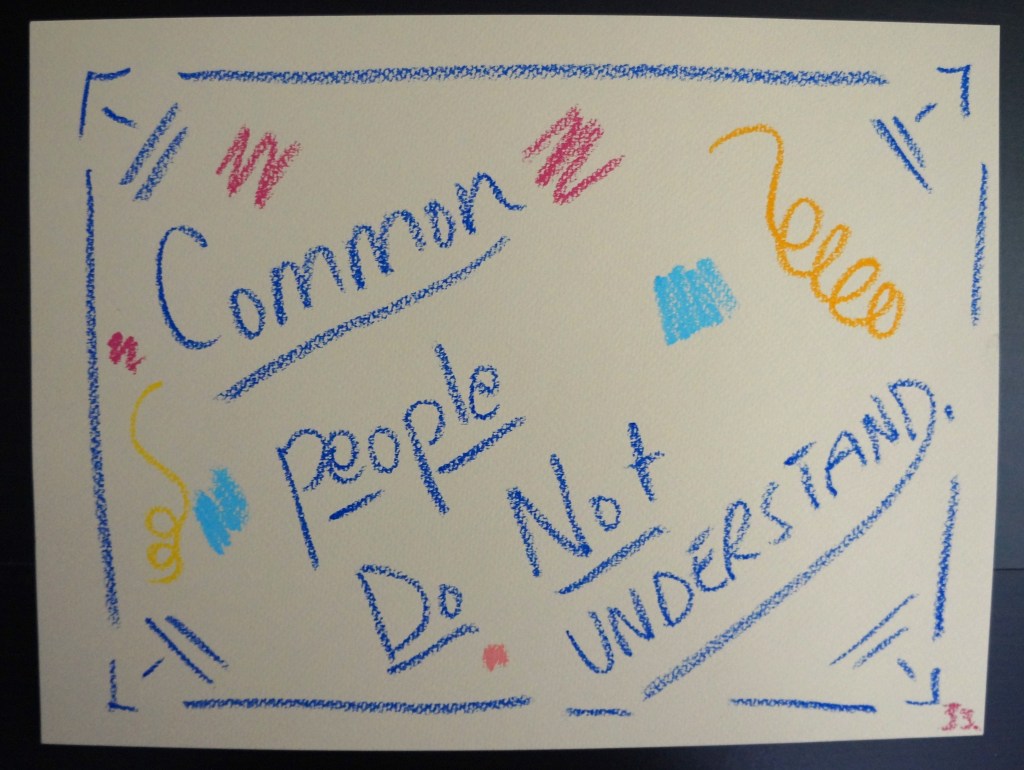 Common
people
Do Not
UNDERSTAND.